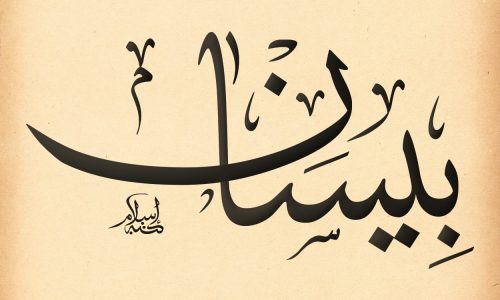 بِيسَان
كتبه إسلام